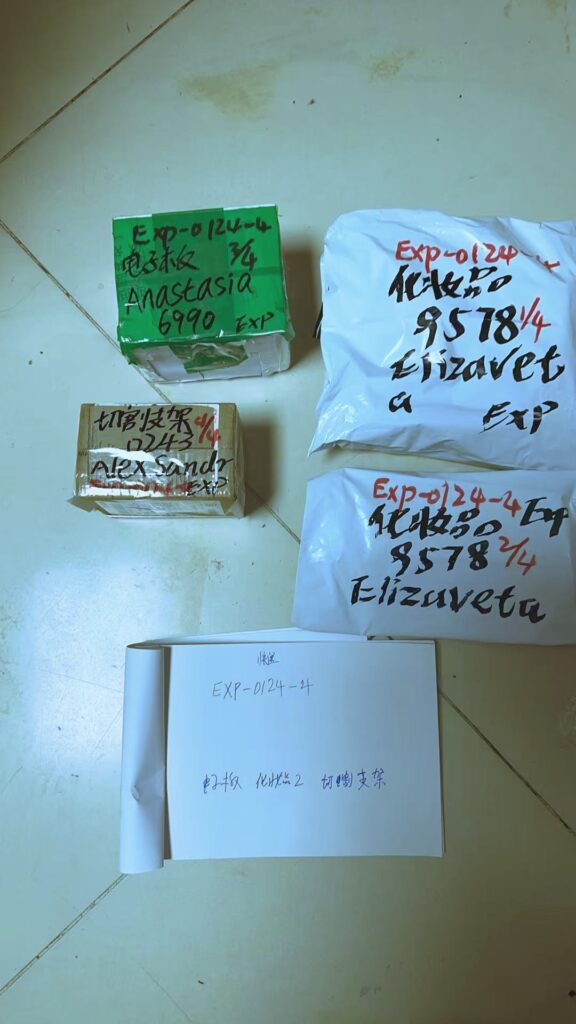 Exp-0124-4
电子板 3/4
Anastasia
6990 EXP
Exp-0124-4
化妆品
9578 1/4
Elizavet
a EXP
切管支架
0243 4/4
AlexSandr
EXP
Exp-0124-4
化妆品 Exp
9578 2/4
Elizaveta
快递
EXP-0124-4
电子板 化妆品2 切割支架